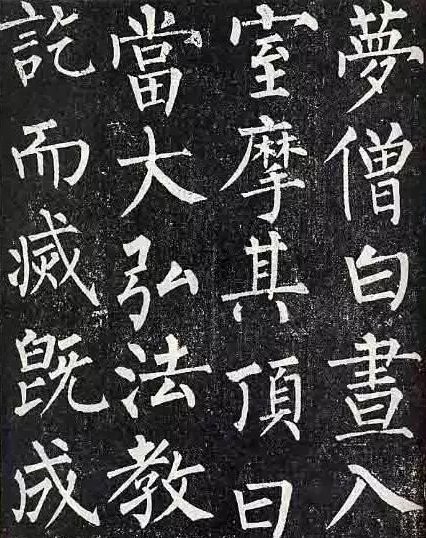 夢僧白晝入
室摩其頂曰
當大弘法教
訖而滅既成